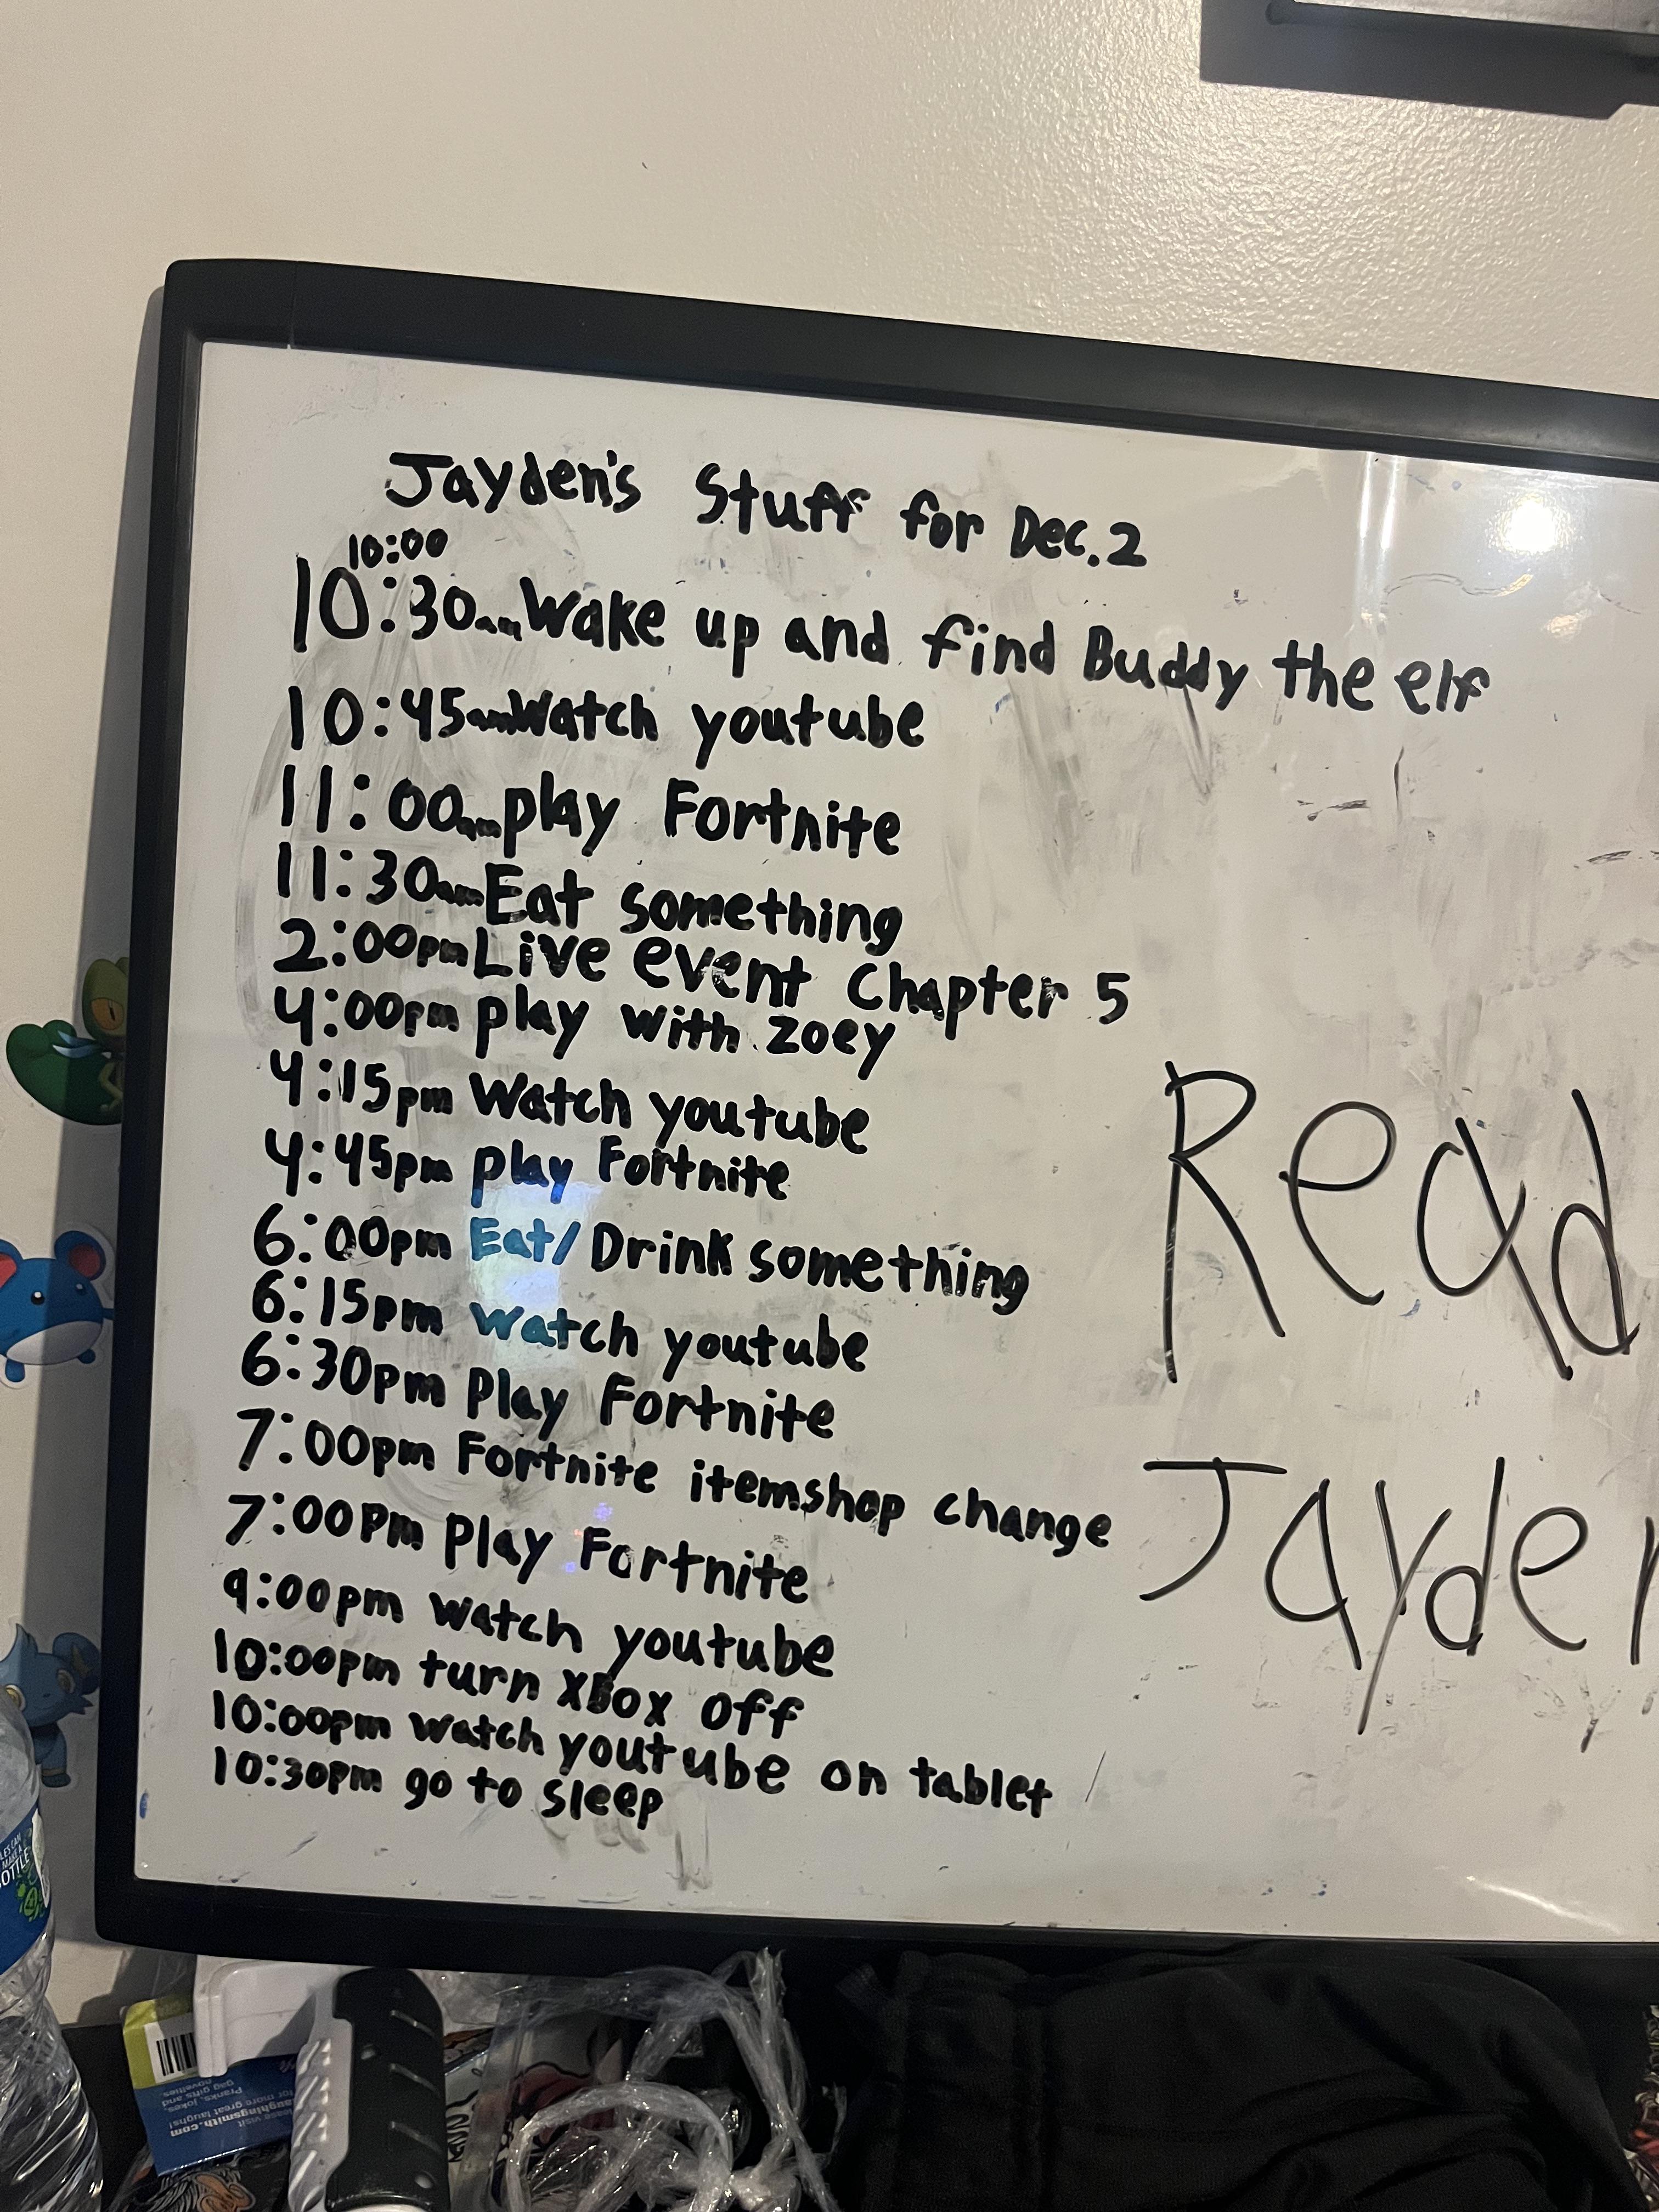 Jayden's Stuff for Dec.2
10:00
10:30am Wake up and find Buddy the elf
10:45am Watch youtube
11:00am play Fortnite
11:30am Eat something
2:00pm Live event Chapter 5
4:00pm play with zoey
4:15pm Watch youtube
4:45pm play Fortnite
6:00pm Eat/Drink something
6:15pm watch youtube
6:30pm Play Fortnite
7:00pm Fortnite itemshop change
7:00pm play Fortnite
9:00pm watch youtube
10:00pm turn XBox off
10:00pm watch youtube on tablet
10:30pm go to sleep
Read
Jayden
BOTTLE
visit
laughingsmith.com
for more great laughs!
Pranks, jokes,
gag gifts and
novelties